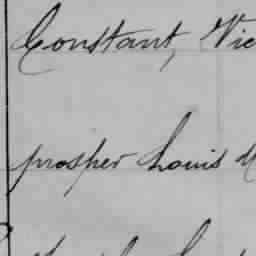 Constant, Vic
prosper Louis